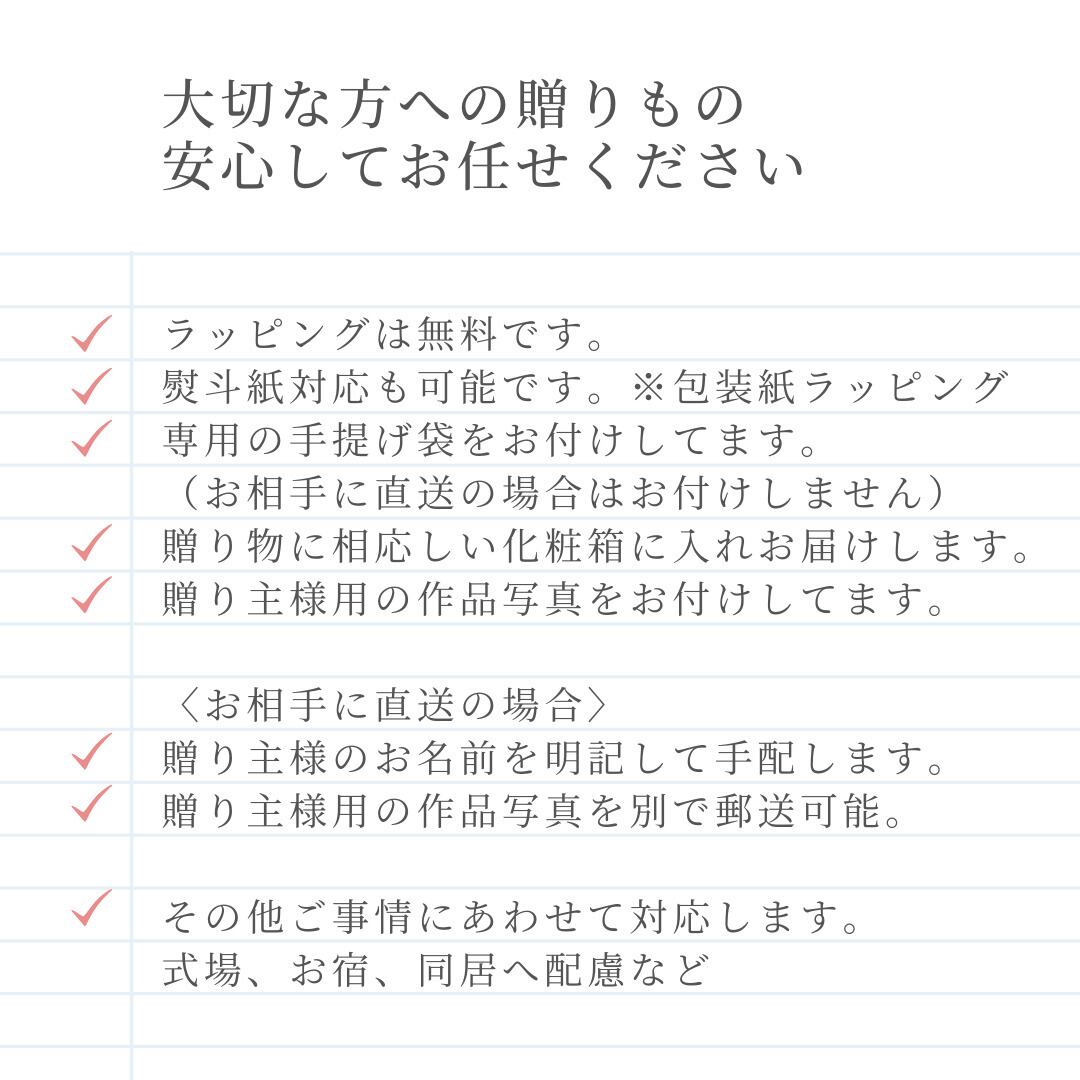 大切な方への贈りもの
安心してお任せください
ラッピングは無料です。
熨斗紙対応も可能です。※包装紙ラッピング
専用の手提げ袋をお付けしてます。
（お相手に直送の場合はお付けしません）
贈り物に相応しい化粧箱に入れお届けします。
贈り主様用の作品写真をお付けしてます。
〈お相手に直送の場合〉
贈り主様のお名前を明記して手配します。
贈り主様用の作品写真を別で郵送可能。
その他ご事情にあわせて対応します。
式場、お宿、同居へ配慮など